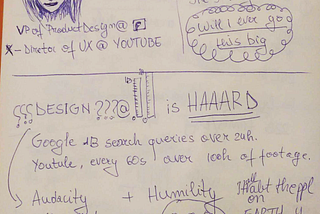 VP of Product Design @ F
X-Director of UX @ YOUTUBE
Will I ever go
this big
DESIGN ???@ is HAAARD
Google 1B search queries over 24h.
Youtube, every 60s over 100h of footage.
Audacity + Humility
on
EARTH